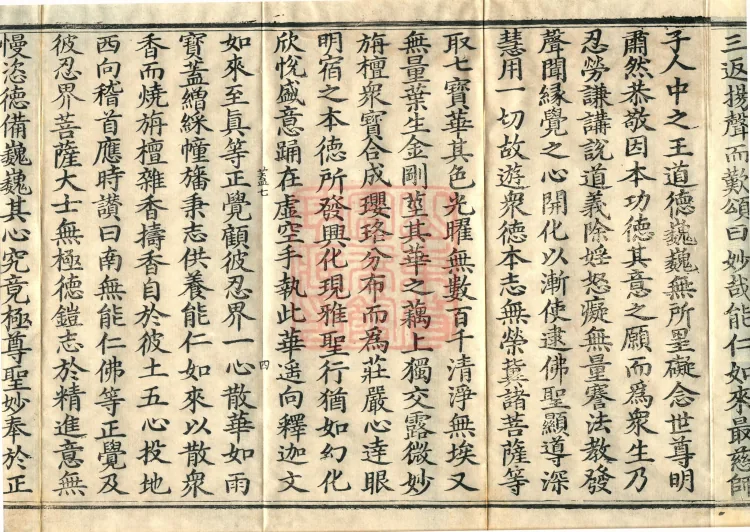 三返揚聲而歎頌曰妙哉能仁如來最慈師
子人中之王道德巍巍無所罣礙念世尊明
肅然恭敬因本功德其意之願而為衆生乃
忍勞謙講說道義除婬怒癡無量謇法教發
聲聞緣覺之心開化以漸使逮佛聖顯導深
慧用一切故遊衆德本志無榮冀諸菩薩等
取七寶華其色光曜無數百千清淨無埃又
無量葉生金剛莖其華之藕上獨交露微妙
旃檀衆寶合成瓔珞分布而爲莊嚴心逹眼
明宿之本德所發興化現雅聖行猶如幻化
欣悅盛意踊在虛空手執此華遥向釋迦文
蓋七 四
如來至真等正覺顧彼忍界一心散華如雨
寶蓋繒綵幢旛秉志供養能仁如來以散衆
香而燒旃檀雜香擣香自於彼土五心投地
西向稽首應時讃曰南無能仁佛等正覺及
彼忍界菩薩大士無極德鎧志於精進意無
慢恣德備巍巍其心究竟極尊聖妙奉於正